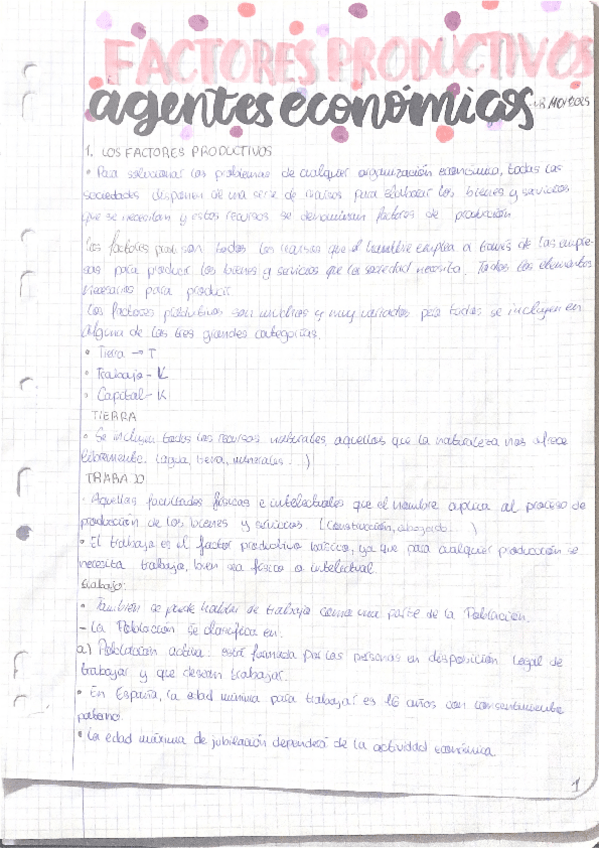 FACTORES PRODUCTIVOS
agentes económicos
1. LOS FACTORES PRODUCTIVOS
• Para solucionar los problemas de cualquier organización económica, todas las
sociedades disponen de una serie de recursos para elaborar los bienes y servicios
que se necesitan y estos recursos se denominan factores de producción.
Los factores prod. son todos los recursos que el hombre emplea a través de las empre-
sas para producir los bienes y servicios que la sociedad necesita. Todos los elementos
necesarios para producir.
Los factores productivos son muchos y muy variados pero todos se incluyen en
alguna de las tres grandes categorías.
• Tierra → T
• Trabajo - L
• Capital - K
TIERRA
• Se incluyen todos los recursos naturales, aquellos que la naturaleza nos ofrece
libremente. (agua, tierra, minerales...)
TRABAJO
• Aquellas facultades físicas e intelectuales que el hombre aplica al proceso de
producción de los bienes y servicios. (construcción, abogado...)
• El trabajo es el factor productivo básico, ya que para cualquier producción se
necesita trabajo, bien sea físico o intelectual.
trabajo:
• También se puede hablar de trabajo como una parte de la Población.
- La Población se clasifica en:
a) Población activa: está formada por las personas en disposición legal de
trabajar y que desean trabajar.
• En España, la edad mínima para trabajar es 16 años con consentimiento
paterno.
• La edad máxima de jubilación dependerá de la actividad económica.
1